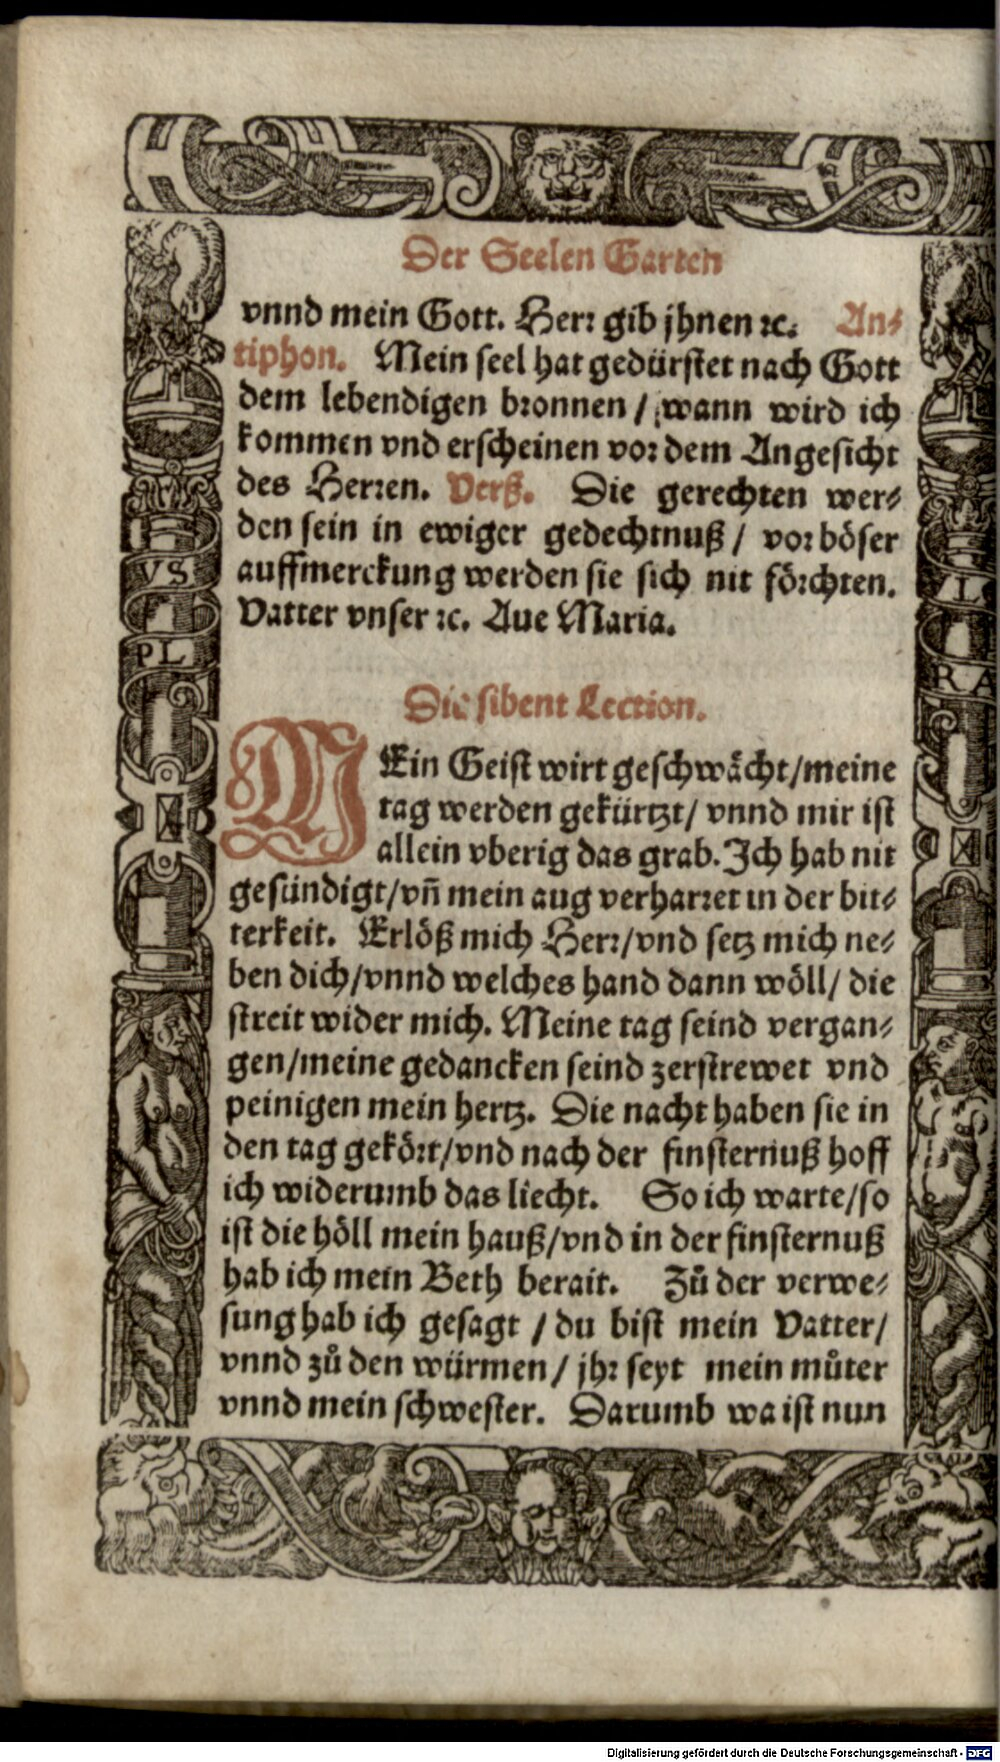 Der Seelen Garten
vnnd mein Gott. Herr gib jhnen ꝛc. An-
tiphon. Mein seel hat gedürstet nach Gott
dem lebendigen bronnen / wann wird ich
kommen vnd erscheinen vor dem Angesicht
des Herren. Verß. Die gerechten wer-
den sein in ewiger gedechtnuß / vor böser
auffmerckung werden sie sich nit förchten.
Vatter vnser ꝛc. Aue Maria.
Die sibent Lection.
MEin Geist wirt geschwächt/meine
tag werden gekürtzt/ vnnd mir ist
allein vberig das grab. Ich hab nit
gesündigt/vñ mein aug verharret in der bit-
terkeit. Erlöß mich Herr/vnd setz mich ne-
ben dich/vnnd welches hand dann wöll/ die
streit wider mich. Meine tag seind vergan-
gen/meine gedancken seind zerstrewet vnd
peinigen mein hertz. Die nacht haben sie in
den tag gekört/vnd nach der finsternuß hoff
ich widerumb das liecht. So ich warte/so
ist die höll mein hauß/vnd in der finsternuß
hab ich mein Beth berait. Zů der verwe-
sung hab ich gesagt / du bist mein Vatter/
vnnd zů den würmen / jhr seyt mein můter
vnnd mein schwester. Darumb wa ist nun
VS
PL
VL
RA
Digitalisierung gefördert durch die Deutsche Forschungsgemeinschaft - DFG